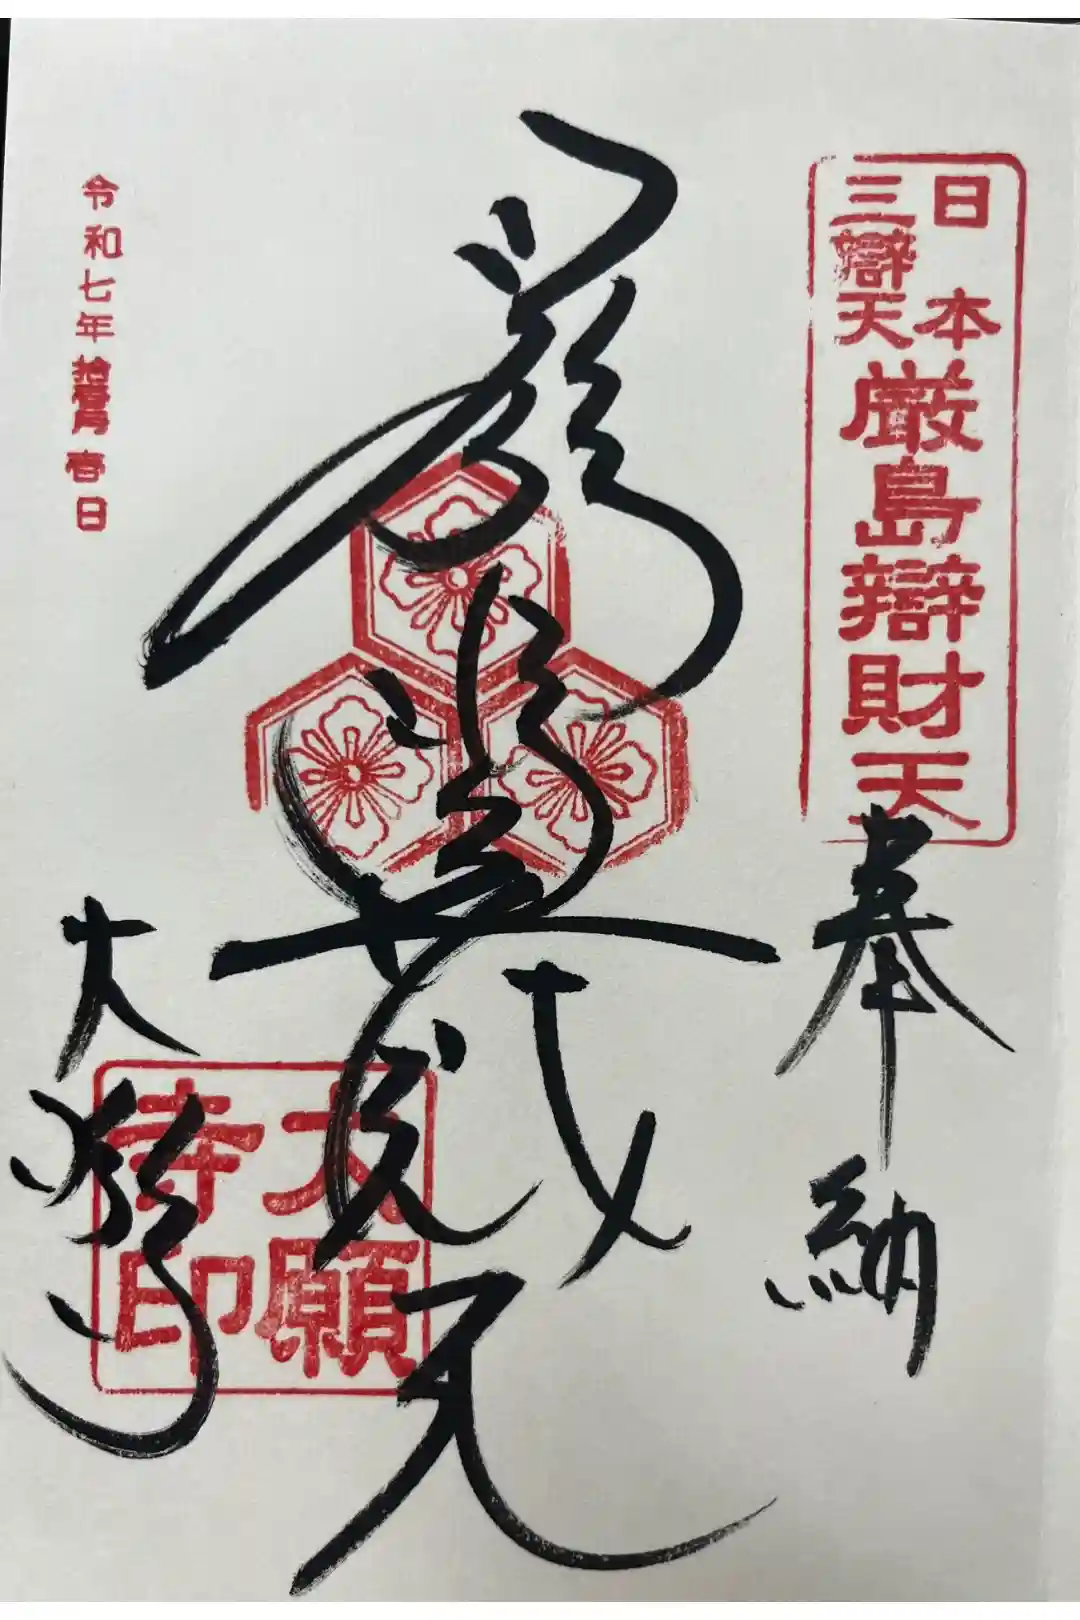 日本
三辯天
厳島辯財天
奉納
大願寺
大願寺印
令和七年拾壹月壱日